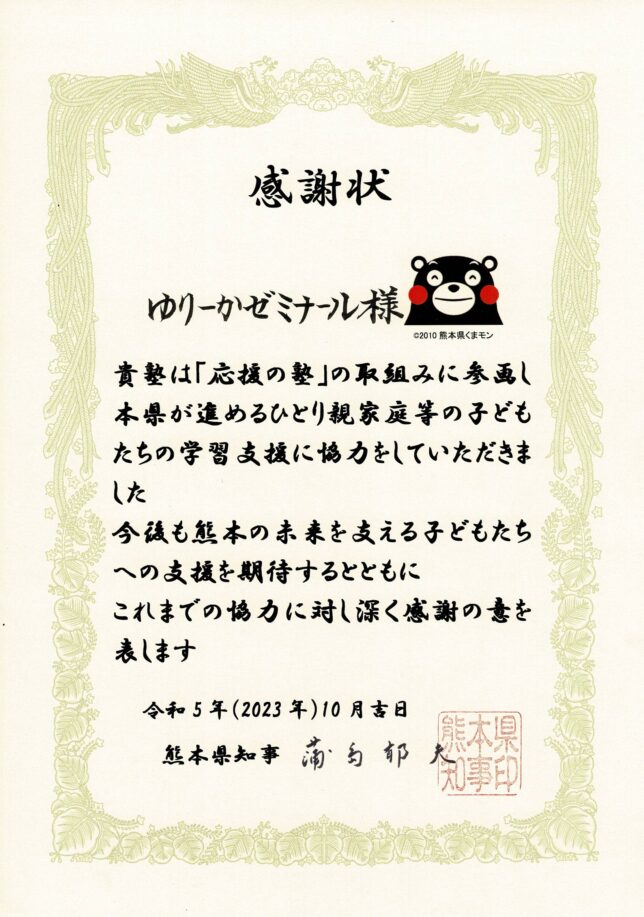 感謝状
ゆりーかゼミナール様
©2010 熊本県くまモン
貴塾は「応援の塾」の取組みに参画し
本県が進めるひとり親家庭等の子ども
たちの学習支援に協力をしていただきま
した
今後も熊本の未来を支える子どもたち
への支援を期待するとともに
これまでの協力に対し深く感謝の意を
表します
令和5年(2023年)10月吉日
熊本県知事 蒲島郁夫
熊本県
知事印